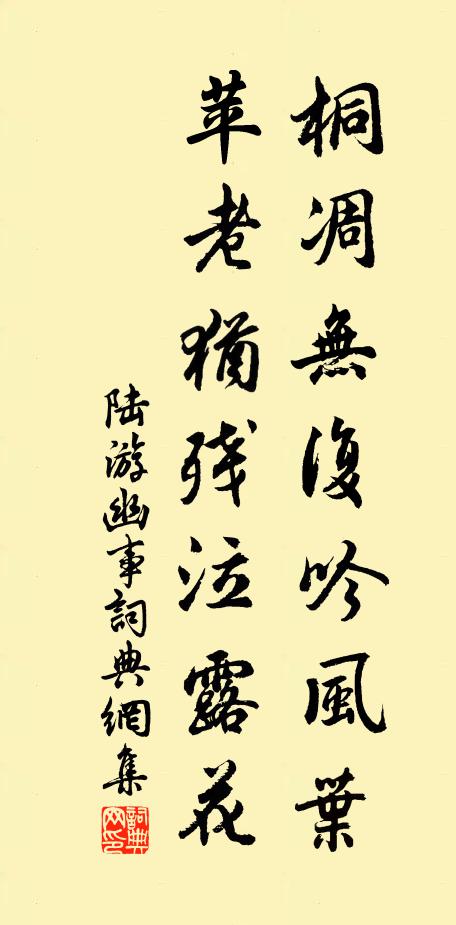 桐凋無復吟風葉
苹老猶残泣露花
陆游幽事詞典網集
詞典网印